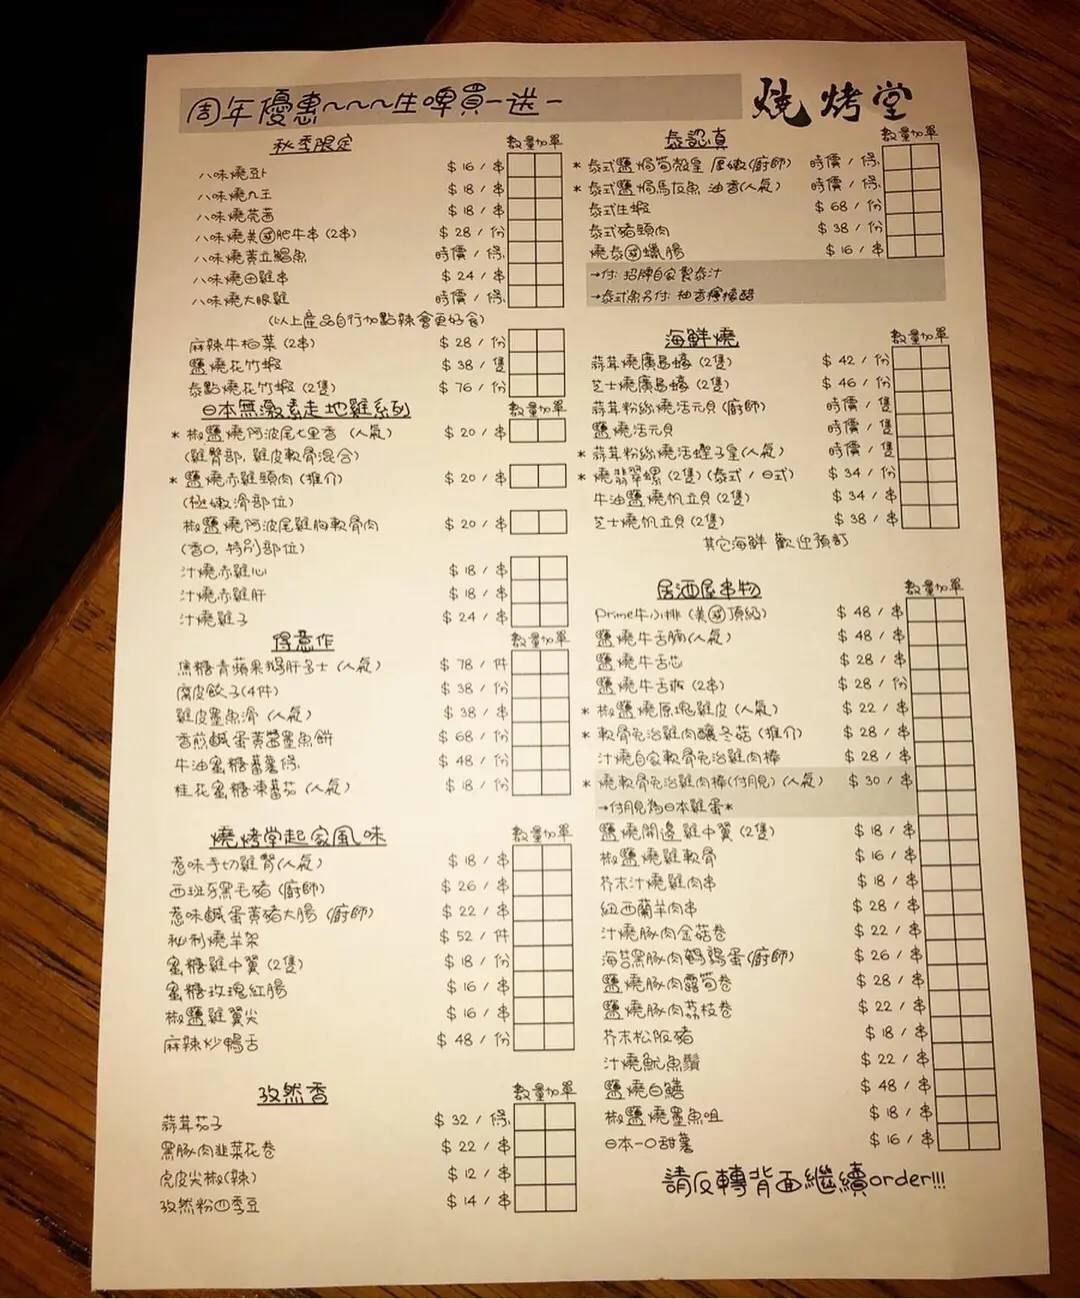 周年優惠~~~生啤買一送一
燒烤堂
秋季限定
數量加單
八味燒豆卜 $ 16 / 串
八味燒九王 $ 18 / 串
八味燒芫茜 $ 18 / 串
八味燒美國肥牛串 (2串) $ 28 / 份
八味燒黃立鯧魚 時價 / 條
八味燒田雞串 $ 24 / 串
八味燒大眼雞 時價 / 條
(以上產品自行加點辣會更好食)
麻辣牛柏葉 (2串) $ 28 / 份
鹽燒花竹蝦 $ 38 / 隻
泰點燒花竹蝦 (2隻) $ 76 / 份
日本無激素走地雞系列
數量加單
* 椒鹽燒阿波尾七里香 (人氣) $ 20 / 串
(雞臀部, 雞皮軟骨混合)
* 鹽燒赤雞頸肉 (推介) $ 20 / 串
(極嫩滑部位)
椒鹽燒阿波尾雞胸軟骨肉 $ 20 / 串
(香口, 特別部位)
汁燒赤雞心 $ 18 / 串
汁燒赤雞肝 $ 18 / 串
汁燒雞子 $ 24 / 串
得意作
數量加單
焦糖青蘋果鵝肝多士 (人氣) $ 78 / 件
腐皮餃子(4件) $ 38 / 份
雞皮墨魚滑 (人氣) $ 38 / 串
香煎鹹蛋黃醬墨魚餅 $ 68 / 份
牛油蜜糖蕃薯條 $ 48 / 份
桂花蜜糖凍蕃茄 (人氣) $ 18 / 份
燒烤堂起家風味
數量加單
惹味手切雞腎(人氣) $ 18 / 串
西班牙黑毛豬 (廚師) $ 26 / 串
惹味鹹蛋黃豬大腸 (廚師) $ 22 / 串
秘制燒羊架 $ 52 / 件
蜜糖雞中翼 (2隻) $ 18 / 份
蜜糖玫瑰紅腸 $ 16 / 串
椒鹽雞翼尖 $ 16 / 串
麻辣炒鴨舌 $ 48 / 份
孜然香
數量加單
蒜茸茄子 $ 32 / 條
黑豚肉韭菜花卷 $ 22 / 串
虎皮尖椒(辣) $ 12 / 串
孜然粉四季豆 $ 14 / 串
泰認真
數量加單
* 泰式鹽焗筍殼皇 厚嫩(廚師) 時價 / 條
* 泰式鹽焗馬友魚 油香(人氣) 時價 / 條
泰式生蝦 $ 68 / 份
泰式豬頸肉 $ 38 / 份
燒泰國蠟腸 $ 16 / 串
→付: 招牌自家製泰汁
→泰式魚另付: 柚香檸檬醋
海鮮燒
數量加單
蒜茸燒廣島蠔 (2隻) $ 42 / 份
芝士燒廣島蠔 (2隻) $ 46 / 份
蒜茸粉絲燒活元貝 (廚師) 時價 / 隻
鹽燒活元貝 時價 / 隻
* 蒜茸粉絲燒活蟶子皇(人氣) 時價 / 隻
* 燒翡翠螺 (2隻) (泰式 / 日式) $ 34 / 份
牛油鹽燒帆立貝 (2隻) $ 34 / 串
芝士燒帆立貝 (2隻) $ 38 / 串
其它海鮮 歡迎預訂
居酒屋串物
數量加單
Prime牛小排 (美國頂級) $ 48 / 串
鹽燒牛舌腩(人氣) $ 48 / 串
鹽燒牛舌芯 $ 28 / 串
鹽燒牛舌粒 (2串) $ 28 / 份
* 椒鹽燒原塊雞皮 (人氣) $ 22 / 串
* 軟骨免治雞肉釀冬菇 (推介) $ 28 / 串
汁燒自家軟骨免治雞肉棒 $ 28 / 串
* 燒軟骨免治雞肉棒(付月見) (人氣) $ 30 / 串
→付月見為日本雞蛋*
鹽燒開邊雞中翼 (2隻) $ 18 / 串
椒鹽燒雞軟骨 $ 16 / 串
芥末汁燒雞肉串 $ 18 / 串
紐西蘭羊肉串 $ 28 / 串
汁燒豚肉金菇卷 $ 22 / 串
海苔黑豚肉鵪鶉蛋(廚師) $ 26 / 串
鹽燒豚肉露筍卷 $ 28 / 串
鹽燒豚肉荔枝卷 $ 22 / 串
芥末松阪豬 $ 18 / 串
汁燒魷魚鬚 $ 22 / 串
鹽燒白鱔 $ 48 / 串
椒鹽燒墨魚咀 $ 18 / 串
日本一口甜薯 $ 16 / 串
請反轉背面繼續order!!!